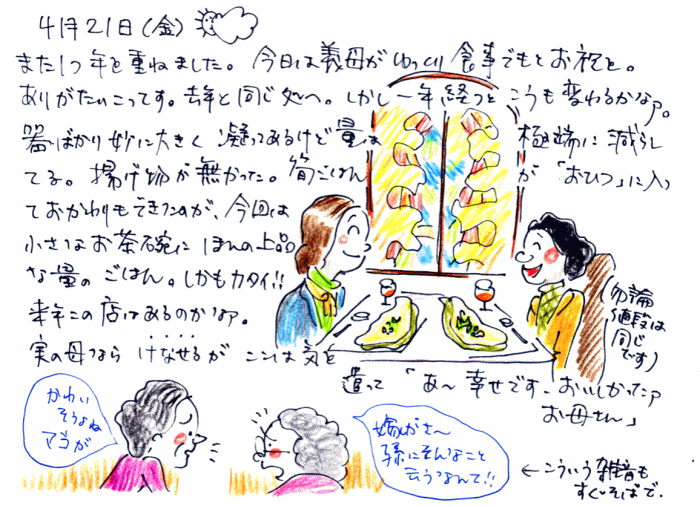 4月21日(金)
また1つ年を重ねました。今日は義母がゆっくり食事でもとお祝を。
ありがたいこってす。去年と同じ処へ。しかし一年経つとこうも変わるかなァ。
器ばかり妙に大きく凝ってあるけど量は極端に減らし
てる。揚げ物が無かった。筍ごはんが「おひつ」に入っ
ておかわりもできたのが、今回は
小さなお茶碗にほんの上品
な量のごはん。しかもカタイ!!
来年この店はあるのかなァ。
(勿論
値段は
同じ
です)
実の母なら けなせるが ここは気を
遣って「あ〜幸せです、おいしかったァ
お母さん」
かわい
そうよね
マゴが
嫁がさ〜
孫にそんなこと
云うなんて!!
←こういう雑音も
すぐそばで.